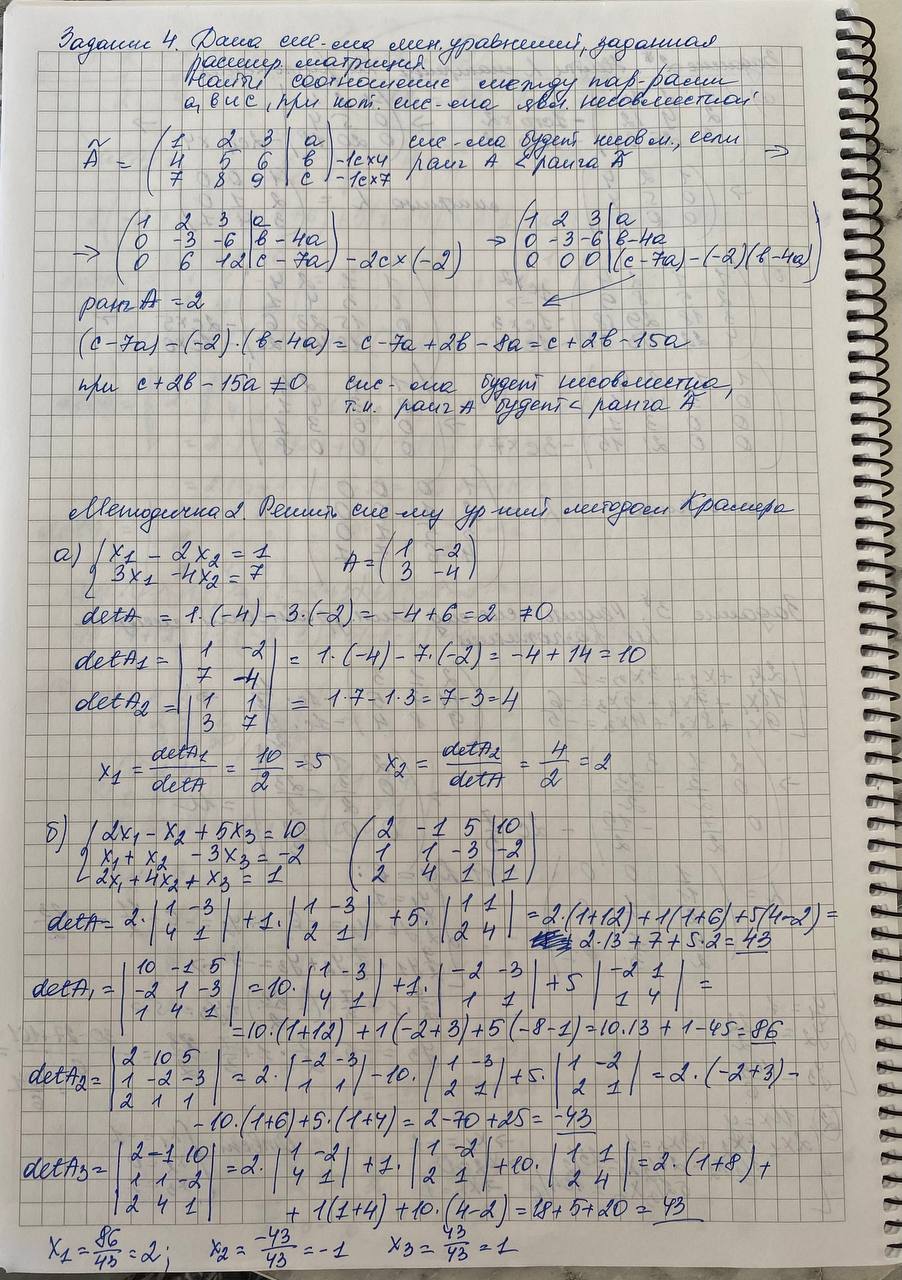 Задание 4. Дана сис-ма лин. уравнений, заданная
расшир. матрицей.
Найти соотношение между пар-рами
a, в и c, при кот. сис-ма явл. несовместной
Ã = (1 2 3 | a
4 5 6 | в
7 8 9 | c) -1c×4 -1c×7
сис-ма будет несовм., если
ранг A < ранга Ã ⇒
→ (1 2 3 | a
0 -3 -6 | в - 4a
0 6 -12 | c - 7a) -2c×(-2)
⇒ (1 2 3 | a
0 -3 -6 | в-4a
0 0 0 | (c-7a)-(-2)(в-4a))
ранг A = 2
(c-7a)-(-2)·(в-4a) = c-7a+2в-8a = c+2в-15a
при c+2в-15a ≠ 0 сис-ма будет несовместна,
т.к. ранг A будет < ранга Ã
Методичка 2. Решить сис-му ур-ний методом Крамера
а) {x₁ - 2x₂ = 1
3x₁ -4x₂ = 7
A = (1 -2
3 -4)
detA = 1·(-4) - 3·(-2) = -4+6 = 2 ≠0
detA₁ = |1 -2
7 -4| = 1·(-4) - 7·(-2) = -4+14 = 10
detA₂ = |1 1
3 7| = 1·7-1·3 = 7-3=4
x₁ = detA₁/detA = 10/2 = 5 x₂ = detA₂/detA = 4/2 = 2
б) {2x₁ - x₂ + 5x₃ = 10
x₁ + x₂ - 3x₃ = -2
2x₁ + 4x₂ + x₃ = 1
(2 -1 5 | 10
1 1 -3 | -2
2 4 1 | 1)
detA = 2·|1 -3
4 1| + 1·|1 -3
2 1| + 5·|1 1
2 4| = 2·(1+12)+1(1+6)+5(4-2) =
2·13+7+5·2 = 43
detA₁ = |10 -1 5
-2 1 -3
1 4 1| = 10·|1 -3
4 1| + 1·|-2 -3
1 1| + 5|-2 1
1 4| =
= 10·(1+12) + 1(-2+3)+5(-8-1) = 10·13 + 1-45 = 86
detA₂ = |2 10 5
1 -2 -3
2 1 1| = 2·|-2 -3
1 1| - 10·|1 -3
2 1| + 5·|1 -2
2 1| = 2·(-2+3) -
-10·(1+6)+5·(1+4) = 2-70+25 = -43
detA₃ = |2 -1 10
1 1 -2
2 4 1| = 2·|1 -2
4 1| + 1·|1 -2
2 1| + 10·|1 1
2 4| = 2·(1+8) +
+ 1(1+4) + 10·(4-2) = 18+5+20 = 43
x₁ = 86/43 = 2; x₂ = -43/43 = -1 x₃ = 43/43 = 1